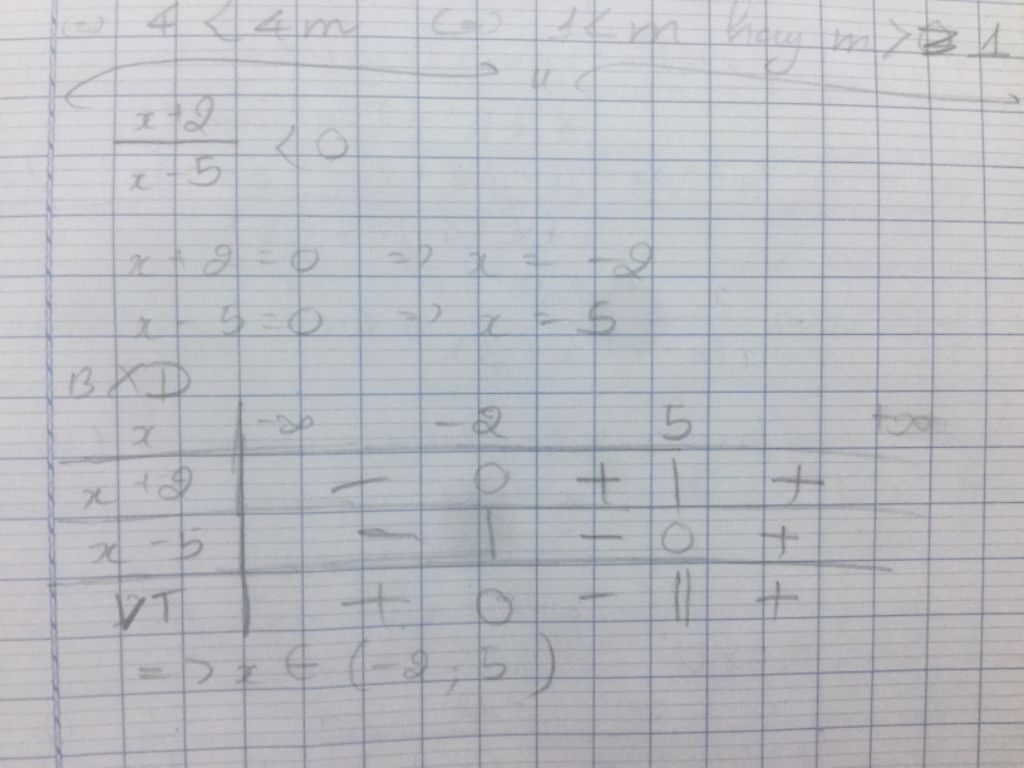 (=) 4 < 4m (=) 1 < m hay m > 1
x+2
x-5 < 0
x + 2 = 0 => x = -2
x - 5 = 0 => x = 5
BXD
x -∞ -2 5 +∞
x +2 - 0 + | +
x -5 - | - 0 +
VT + 0 - || +
=> x ∈ (-2; 5)